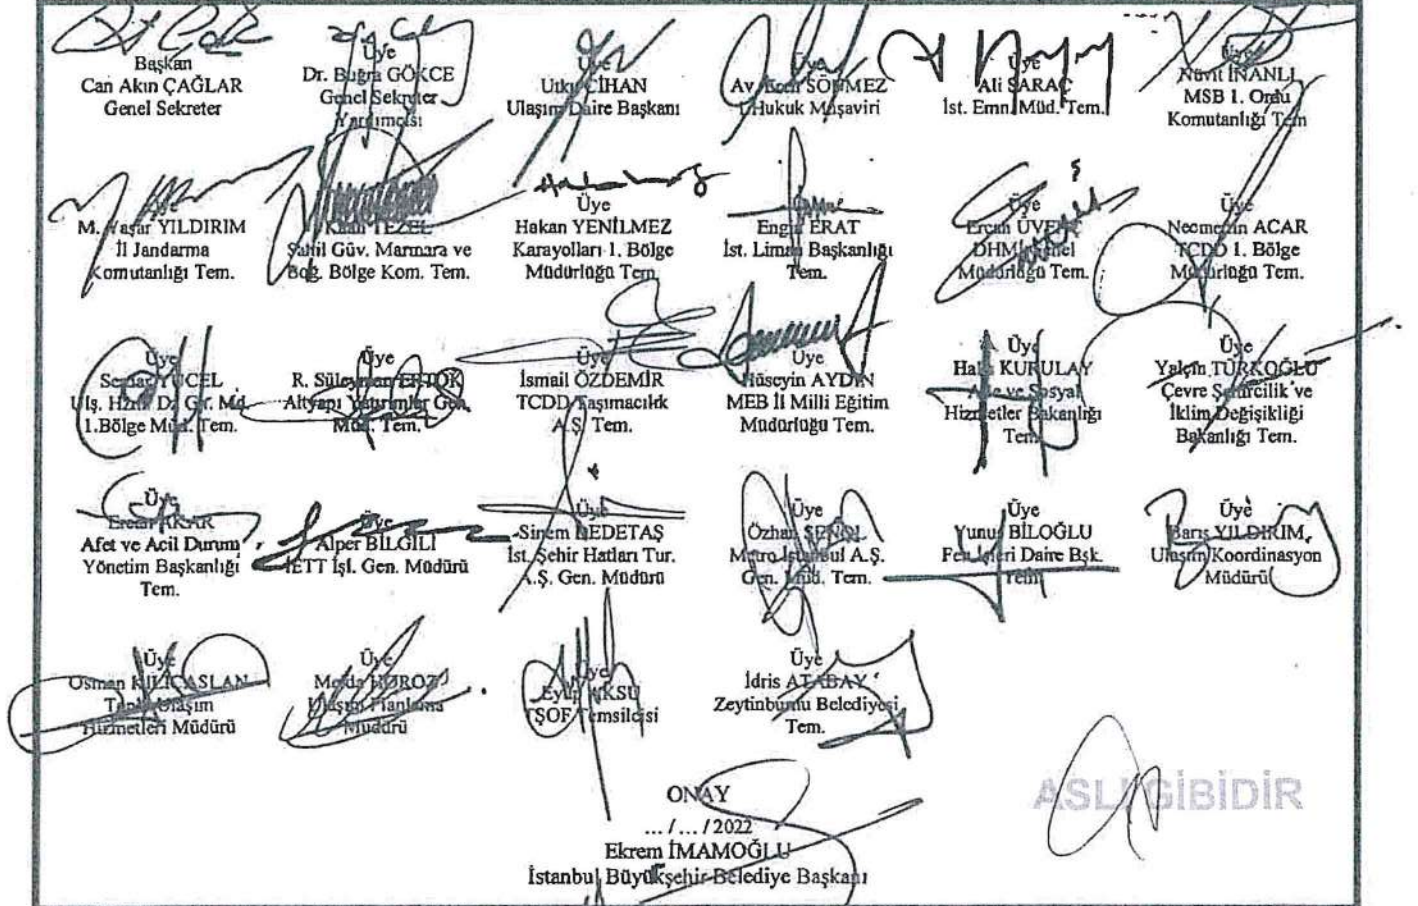 Başkan
Can Akın ÇAĞLAR
Genel Sekreter
Üye
Dr. Buğra GÖKCE
Genel Sekreter
Yardımcısı
Üye
Utku CİHAN
Ulaşım Daire Başkanı
Üye
Av. SÖNMEZ
1.Hukuk Müşaviri
Üye
Ali SARAÇ
İst. Emn. Müd. Tem.
Üye
Nuvit İNANLI
MSB 1. Ordu
Komutanlığı Tem
M. Yaşar YILDIRIM
İl Jandarma
Komutanlığı Tem.
TEZEL
Sahil Güv. Marmara ve
Boğ. Bölge Kom. Tem.
Üye
Hakan YENİLMEZ
Karayolları 1. Bölge
Müdürlüğü Tem.
Engin ERAT
İst. Liman Başkanlığı
Tem.
Üye
Ercan
DHMİ Genel
Müdürlüğü Tem.
Üye
Necmettin ACAR
TCDD 1. Bölge
Müdürlüğü Tem.
Üye
Serdar YÜCEL
Ulş. Hzm. Dz. Gn. Md.
1.Bölge Müd. Tem.
Üye
R. Süleyman ERTOK
Altyapı Yatırımlar Gen.
Müd. Tem.
Üye
İsmail ÖZDEMİR
TCDD Taşımacılık
A.Ş. Tem.
Üye
Hüseyin AYDIN
MEB İl Milli Eğitim
Müdürlüğü Tem.
Üye
KURULAY
Aile ve Sosyal
Hizmetler Bakanlığı
Tem.
Üye
Yalçın TÜRKOĞLU
Çevre Şehircilik ve
İklim Değişikliği
Bakanlığı Tem.
Üye
AKAR
Afet ve Acil Durum
Yönetim Başkanlığı
Tem.
Üye
Alper BİLGİLİ
İETT İşl. Gen. Müdürü
Üye
Sinem DEDETAŞ
İst. Şehir Hatları Tur.
A.Ş. Gen. Müdürü
Üye
Özhan
Metro İstanbul A.Ş.
Gen. Müd. Tem.
Üye
Yunus BİLOĞLU
Fen İşleri Daire Bşk.
Tem.
Üye
Barış YILDIRIM
Ulaşım Koordinasyon
Müdürü
Üye
Osman KILIÇASLAN
Toplu Ulaşım
Hizmetleri Müdürü
Üye
HOROZ
Ulaşım Planlama
Müdürü
Üye
Eyüp AKSU
TŞOF Temsilcisi
Üye
İdris ATABAY
Zeytinburnu Belediyesi
Tem.
ONAY
... / ... / 2022
Ekrem İMAMOĞLU
İstanbul Büyükşehir Belediye Başkanı
ASLI GİBİDİR